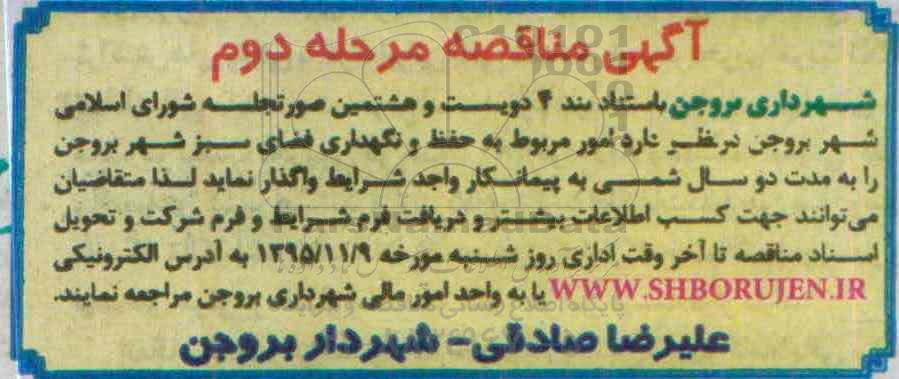 آگهی مناقصه مرحله دوم
شهرداری بروجن باستناد بند ۴ دویست و هشتمین صورتجلسه شورای اسلامی
شهر بروجن در نظر دارد امور مربوط به حفظ و نگهداری فضای سبز شهر بروجن
را به مدت دو سال شمسی به پیمانکار واجد شرایط واگذار نماید لذا متقاضیان
می‌توانند جهت کسب اطلاعات بیشتر و دریافت فرم شرایط و فرم شرکت و تحویل
اسناد مناقصه تا آخر وقت اداری روز شنبه مورخه ۱۳۹۵/۱۱/۹ به آدرس الکترونیکی
WWW.SHBORUJEN.IR یا به واحد امور مالی شهرداری بروجن مراجعه نمایند.
علیرضا صادقی- شهردار بروجن